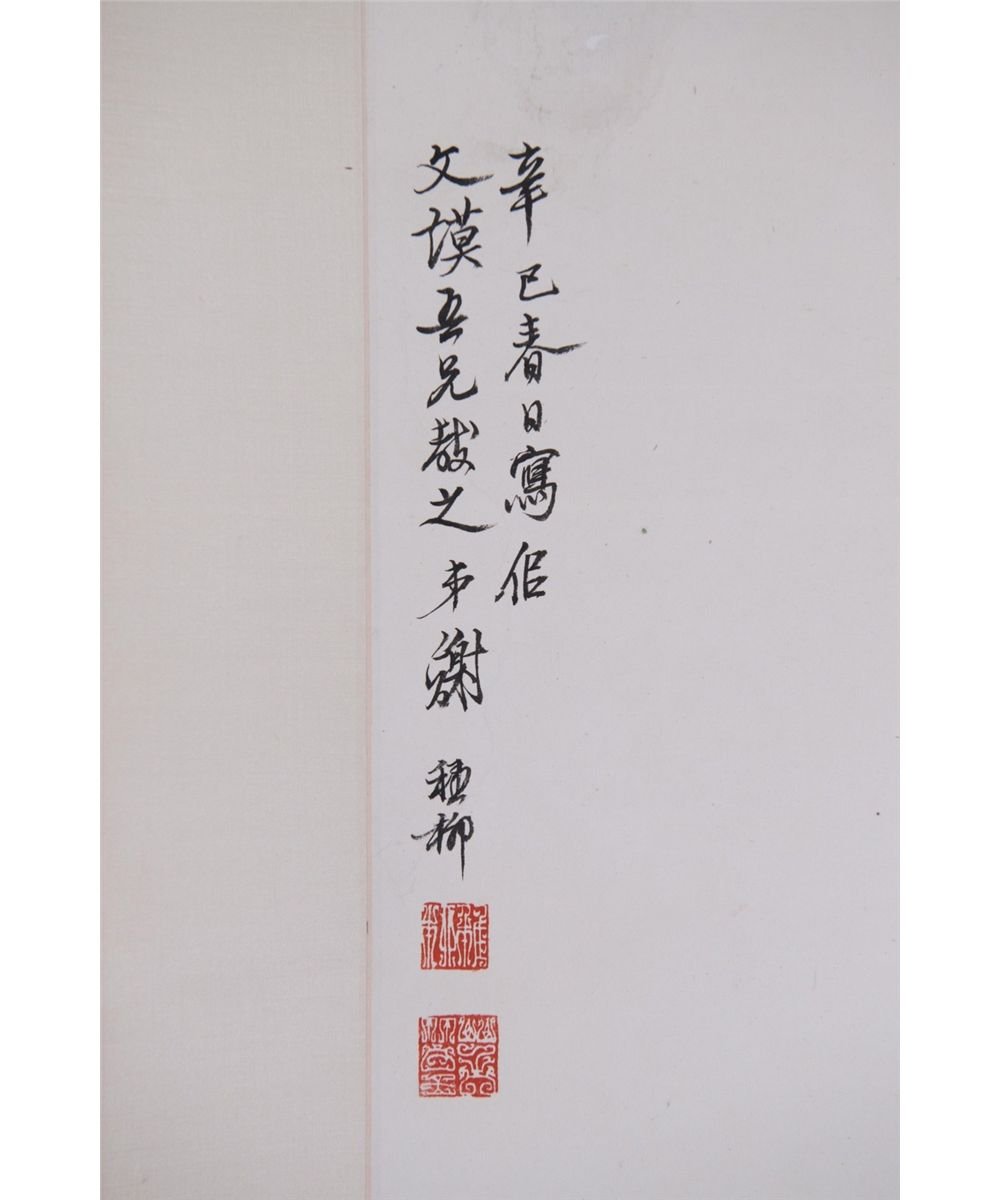 辛巳春日寫佀
文塻吾兄教之弟謝稚柳